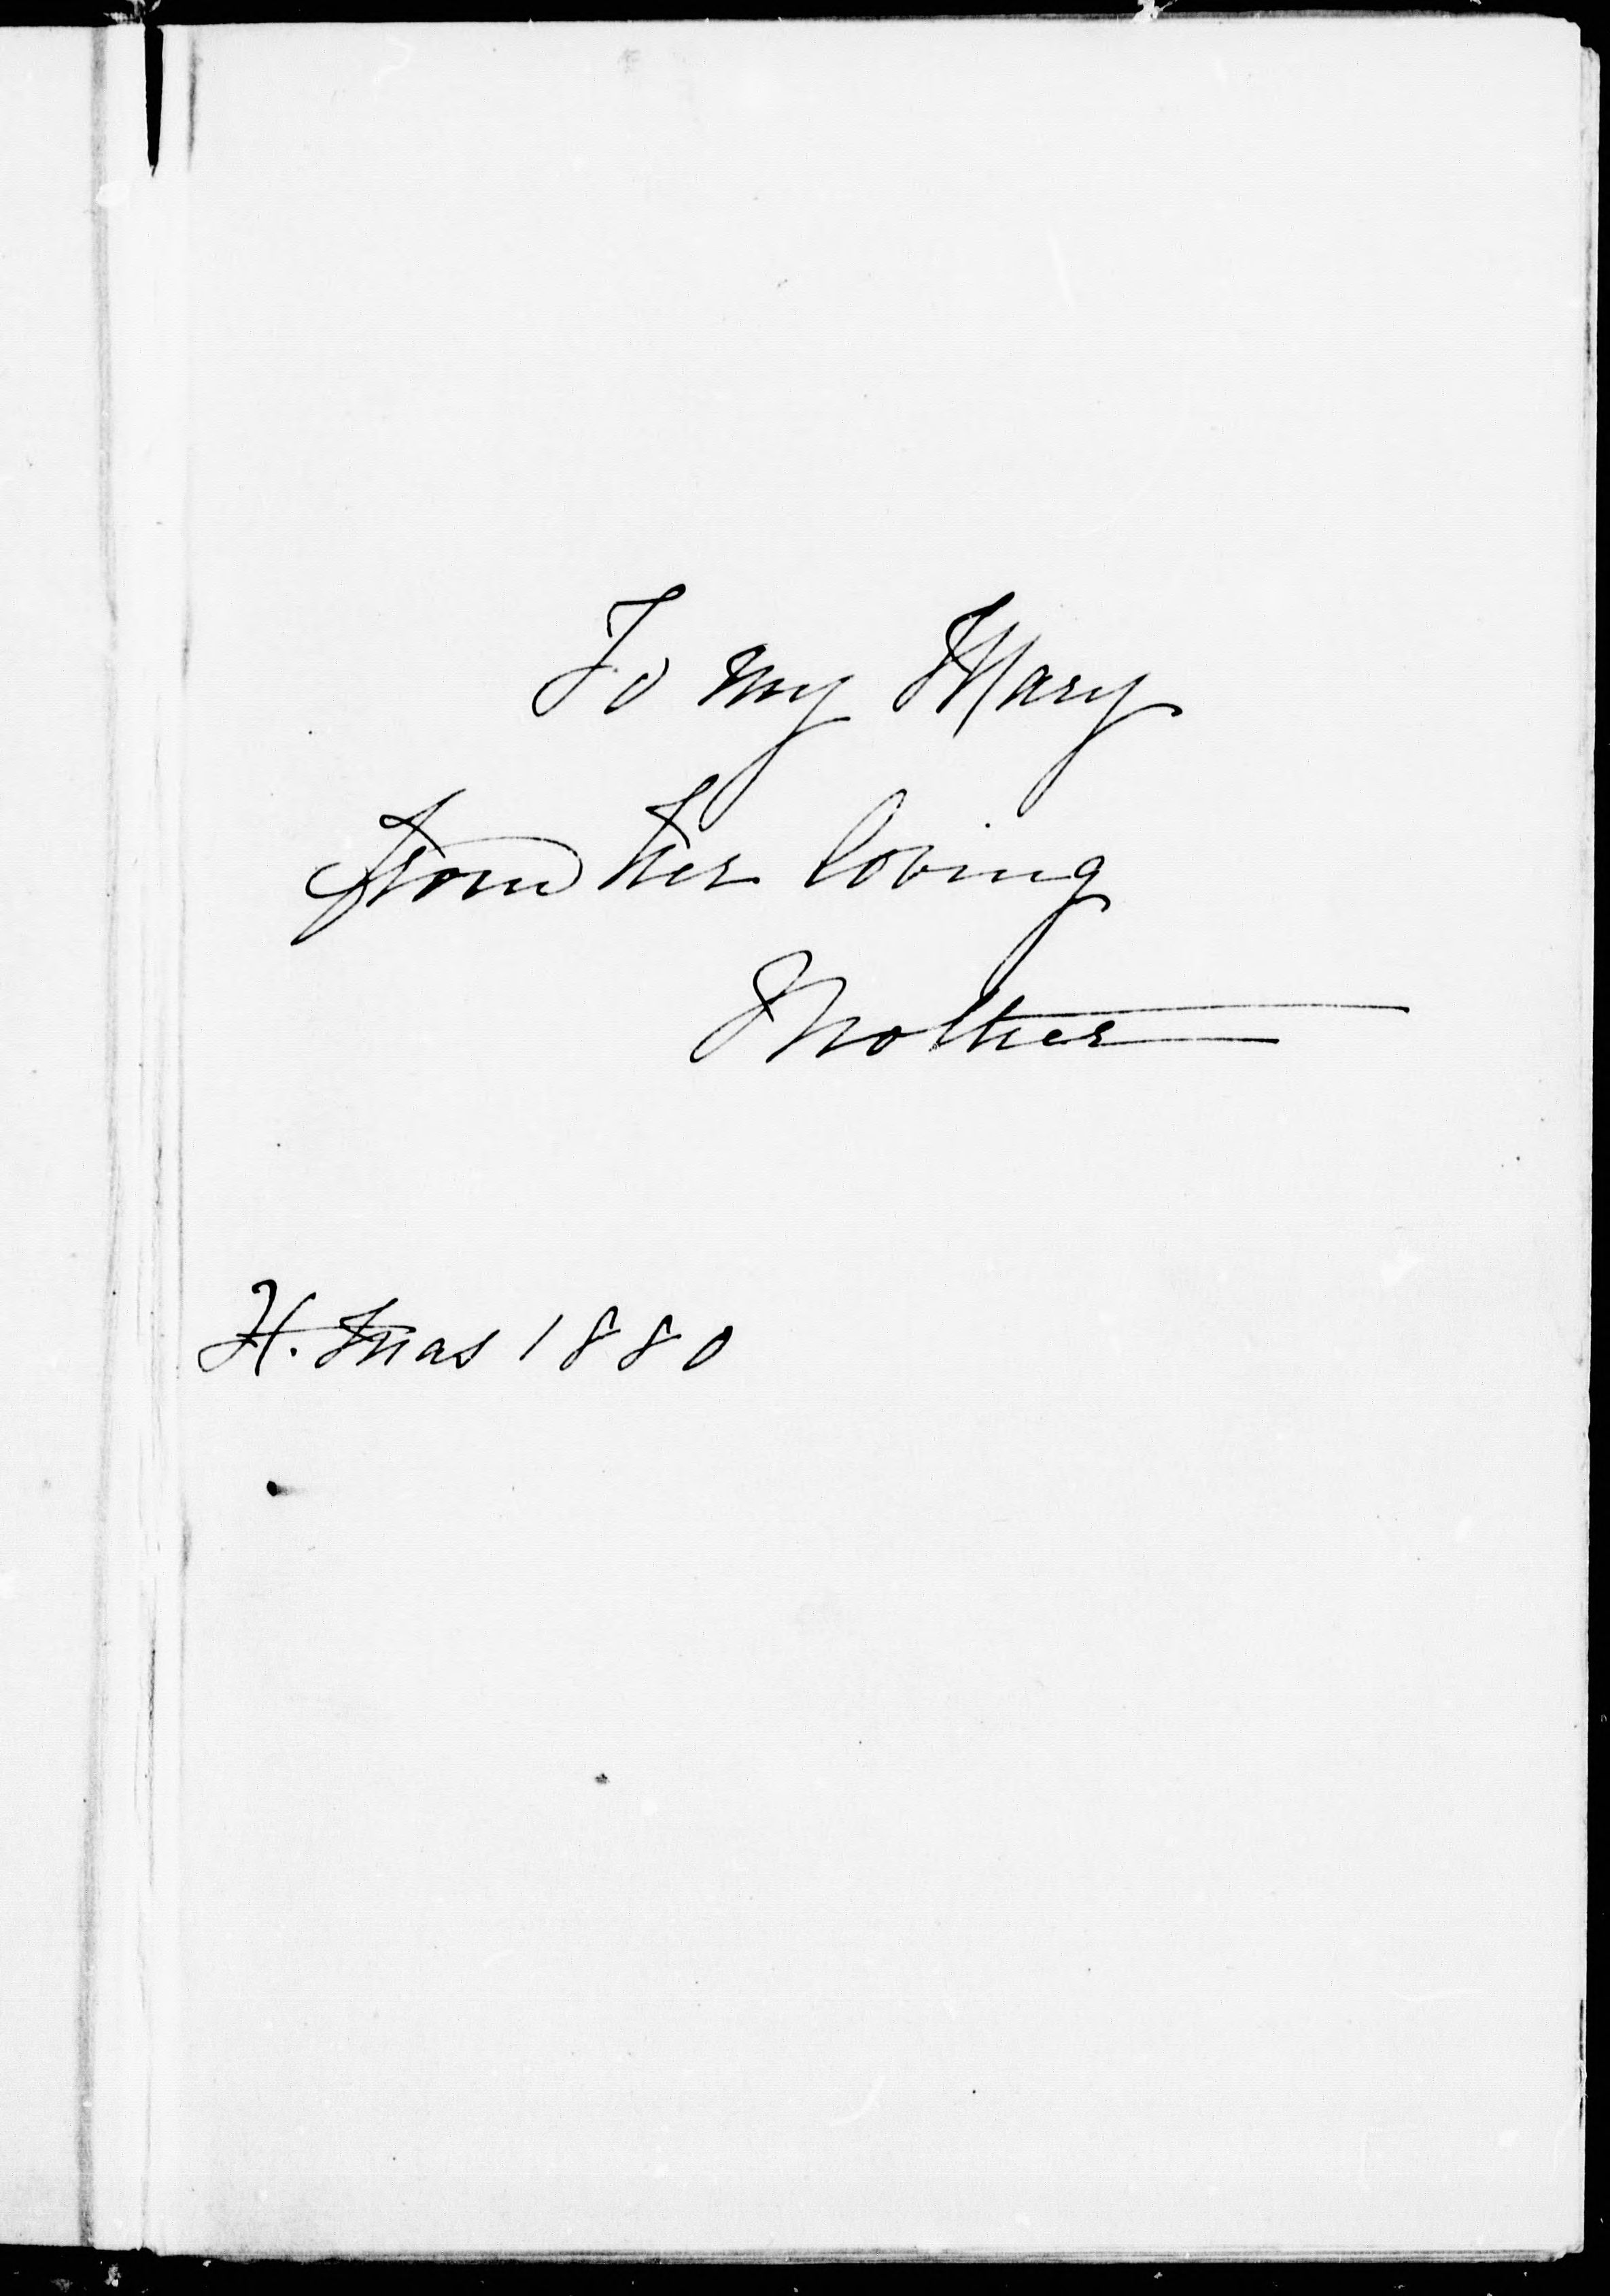 To my Mary
from her loving
Mother
X. mas 1880